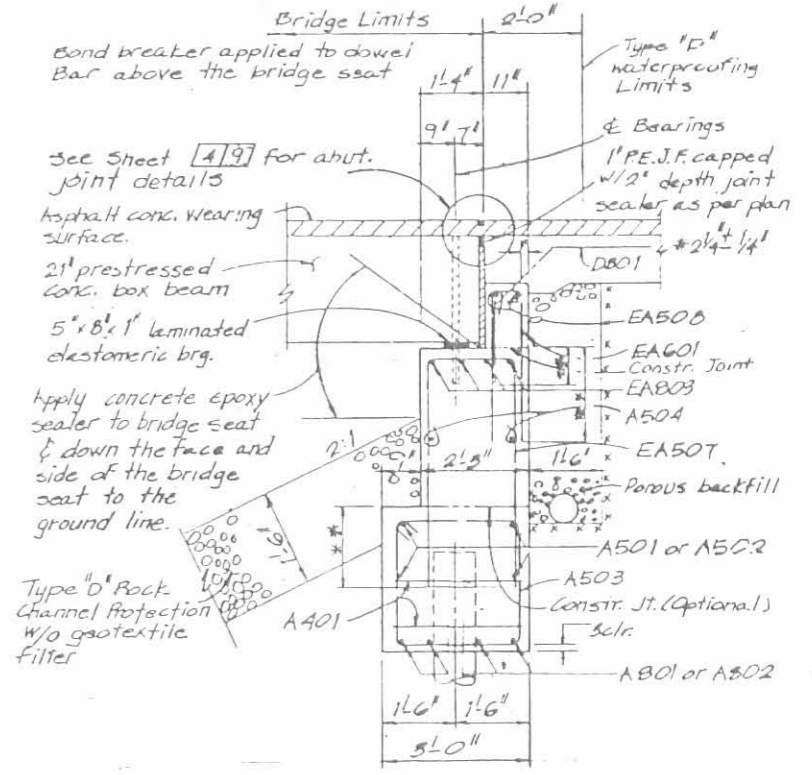 Bridge Limits
2'-0"
Bond breaker applied to dowel
Bar above the bridge seat
Type "D"
waterproofing
Limits
1'-4"
11"
9" 7"
℄ Bearings
See Sheet 4 9 for abut.
joint details
1" P.E.J.F. capped
w/2" depth joint
sealer as per plan
Asphalt conc. wearing
surface.
2 1/4" ± 1/4"
D801
21" prestressed
conc. box beam
EA508
5" x 8" x 1" laminated
elastomeric brg.
EA601
Constr. Joint
EA803
Apply concrete epoxy
sealer to bridge seat
& down the face and
side of the bridge
seat to the
ground line.
A504
EA507
2:1
2'-5"
1'-6"
Porous backfill
1'-6"
**
A501 or A502
A503
Type "D" Rock
Channel Protection
w/o geotextile
filter
A401
Constr. Jt. (Optional)
3clr.
A801 or A802
1'-6" 1'-6"
3'-0"